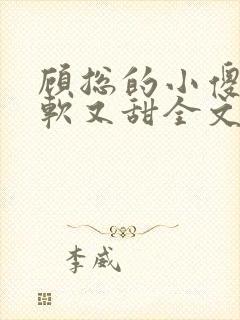 顾总的小傻
软又甜全文
李威